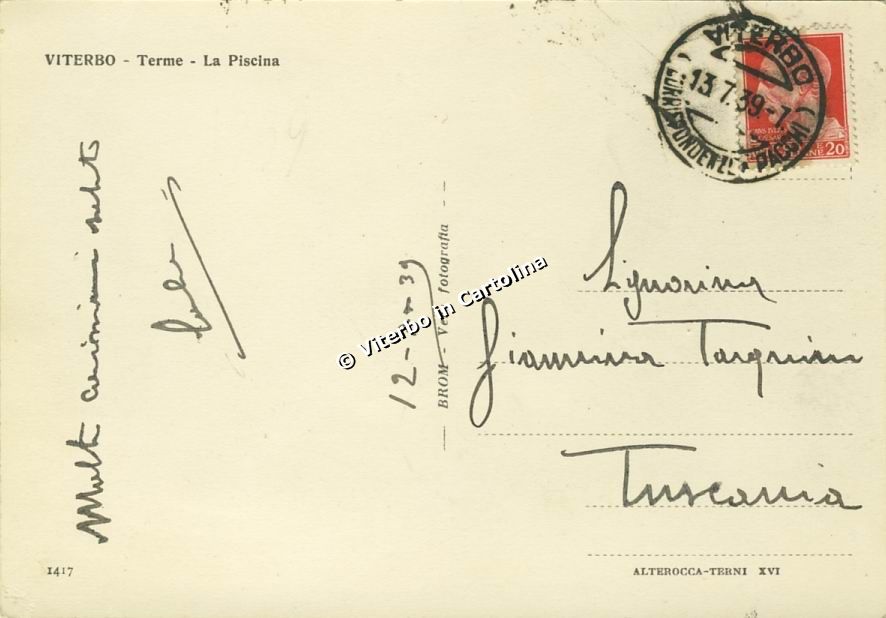 VITERBO - Terme - La Piscina
VITERBO
13.7.39-7
(CORRISPONDENZE E PACCHI)
20
Molti carissimi saluti
12-7-39
BROM - Vera fotografia
© Viterbo in Cartolina
Signorina
Giannina Tarquini
Tuscania
1417
ALTEROCCA-TERNI XVI